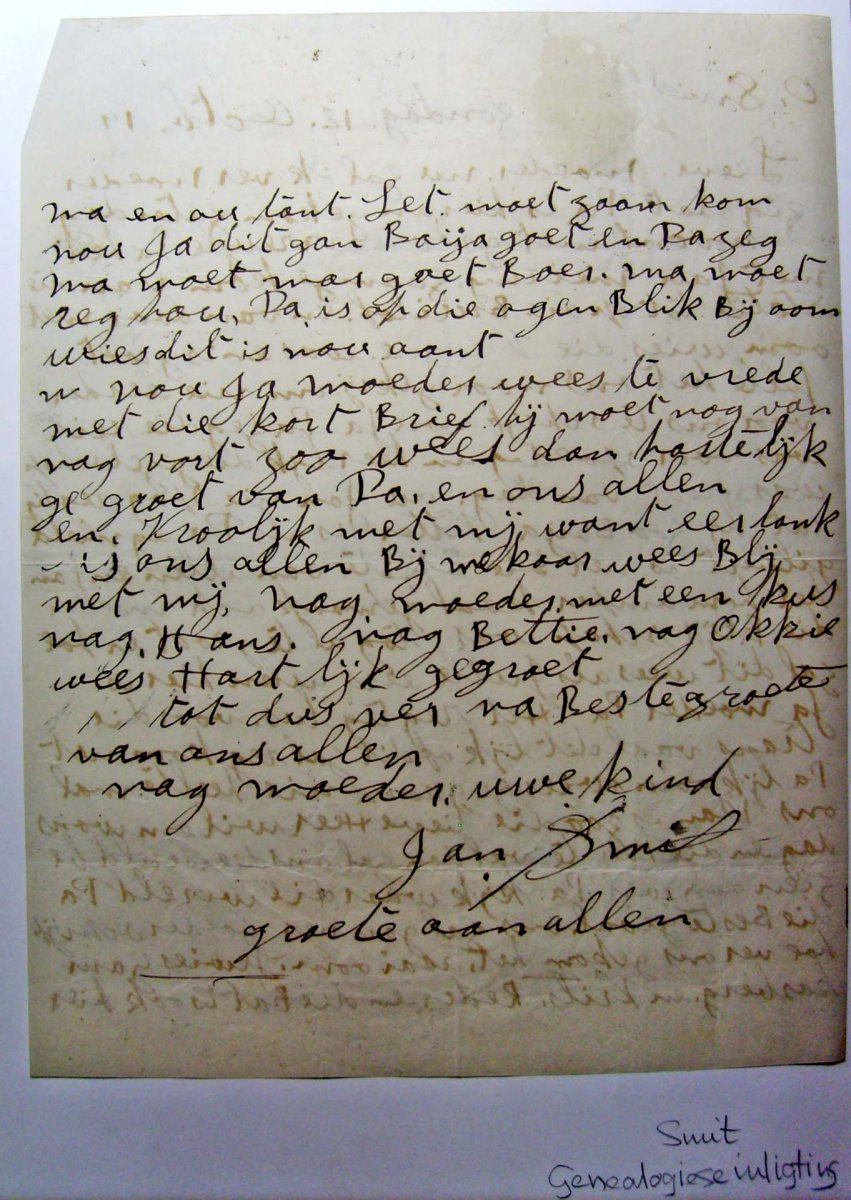 ma en ou tant. Let. moet zoom kom
nou Ja dit gan Baija goet en Pa zeg
ma moet mar goet Boer. ma moet
reg hou, Pa is op die ogen Blik Bij oom
wies dit is nou aant
nou Ja moeder wees te vrede
met die kort Brief. hij moet nog van
nag vort zoo wees dan hartelijk
ge groet van Pa, en ons allen
en. Vroolijk met mij, want eerlank
is ons allen Bij mekaar wees Blij
met mij, nag moeder. met een kus
nag. Hans. nag Bettie. nag Okkie
wees Hart lijk gegroet
tot dus ver na Beste groete
van ons allen
nag moeder. uwe kind
Jan Smit
groete aan allen
Smit
Genealogiese inligting